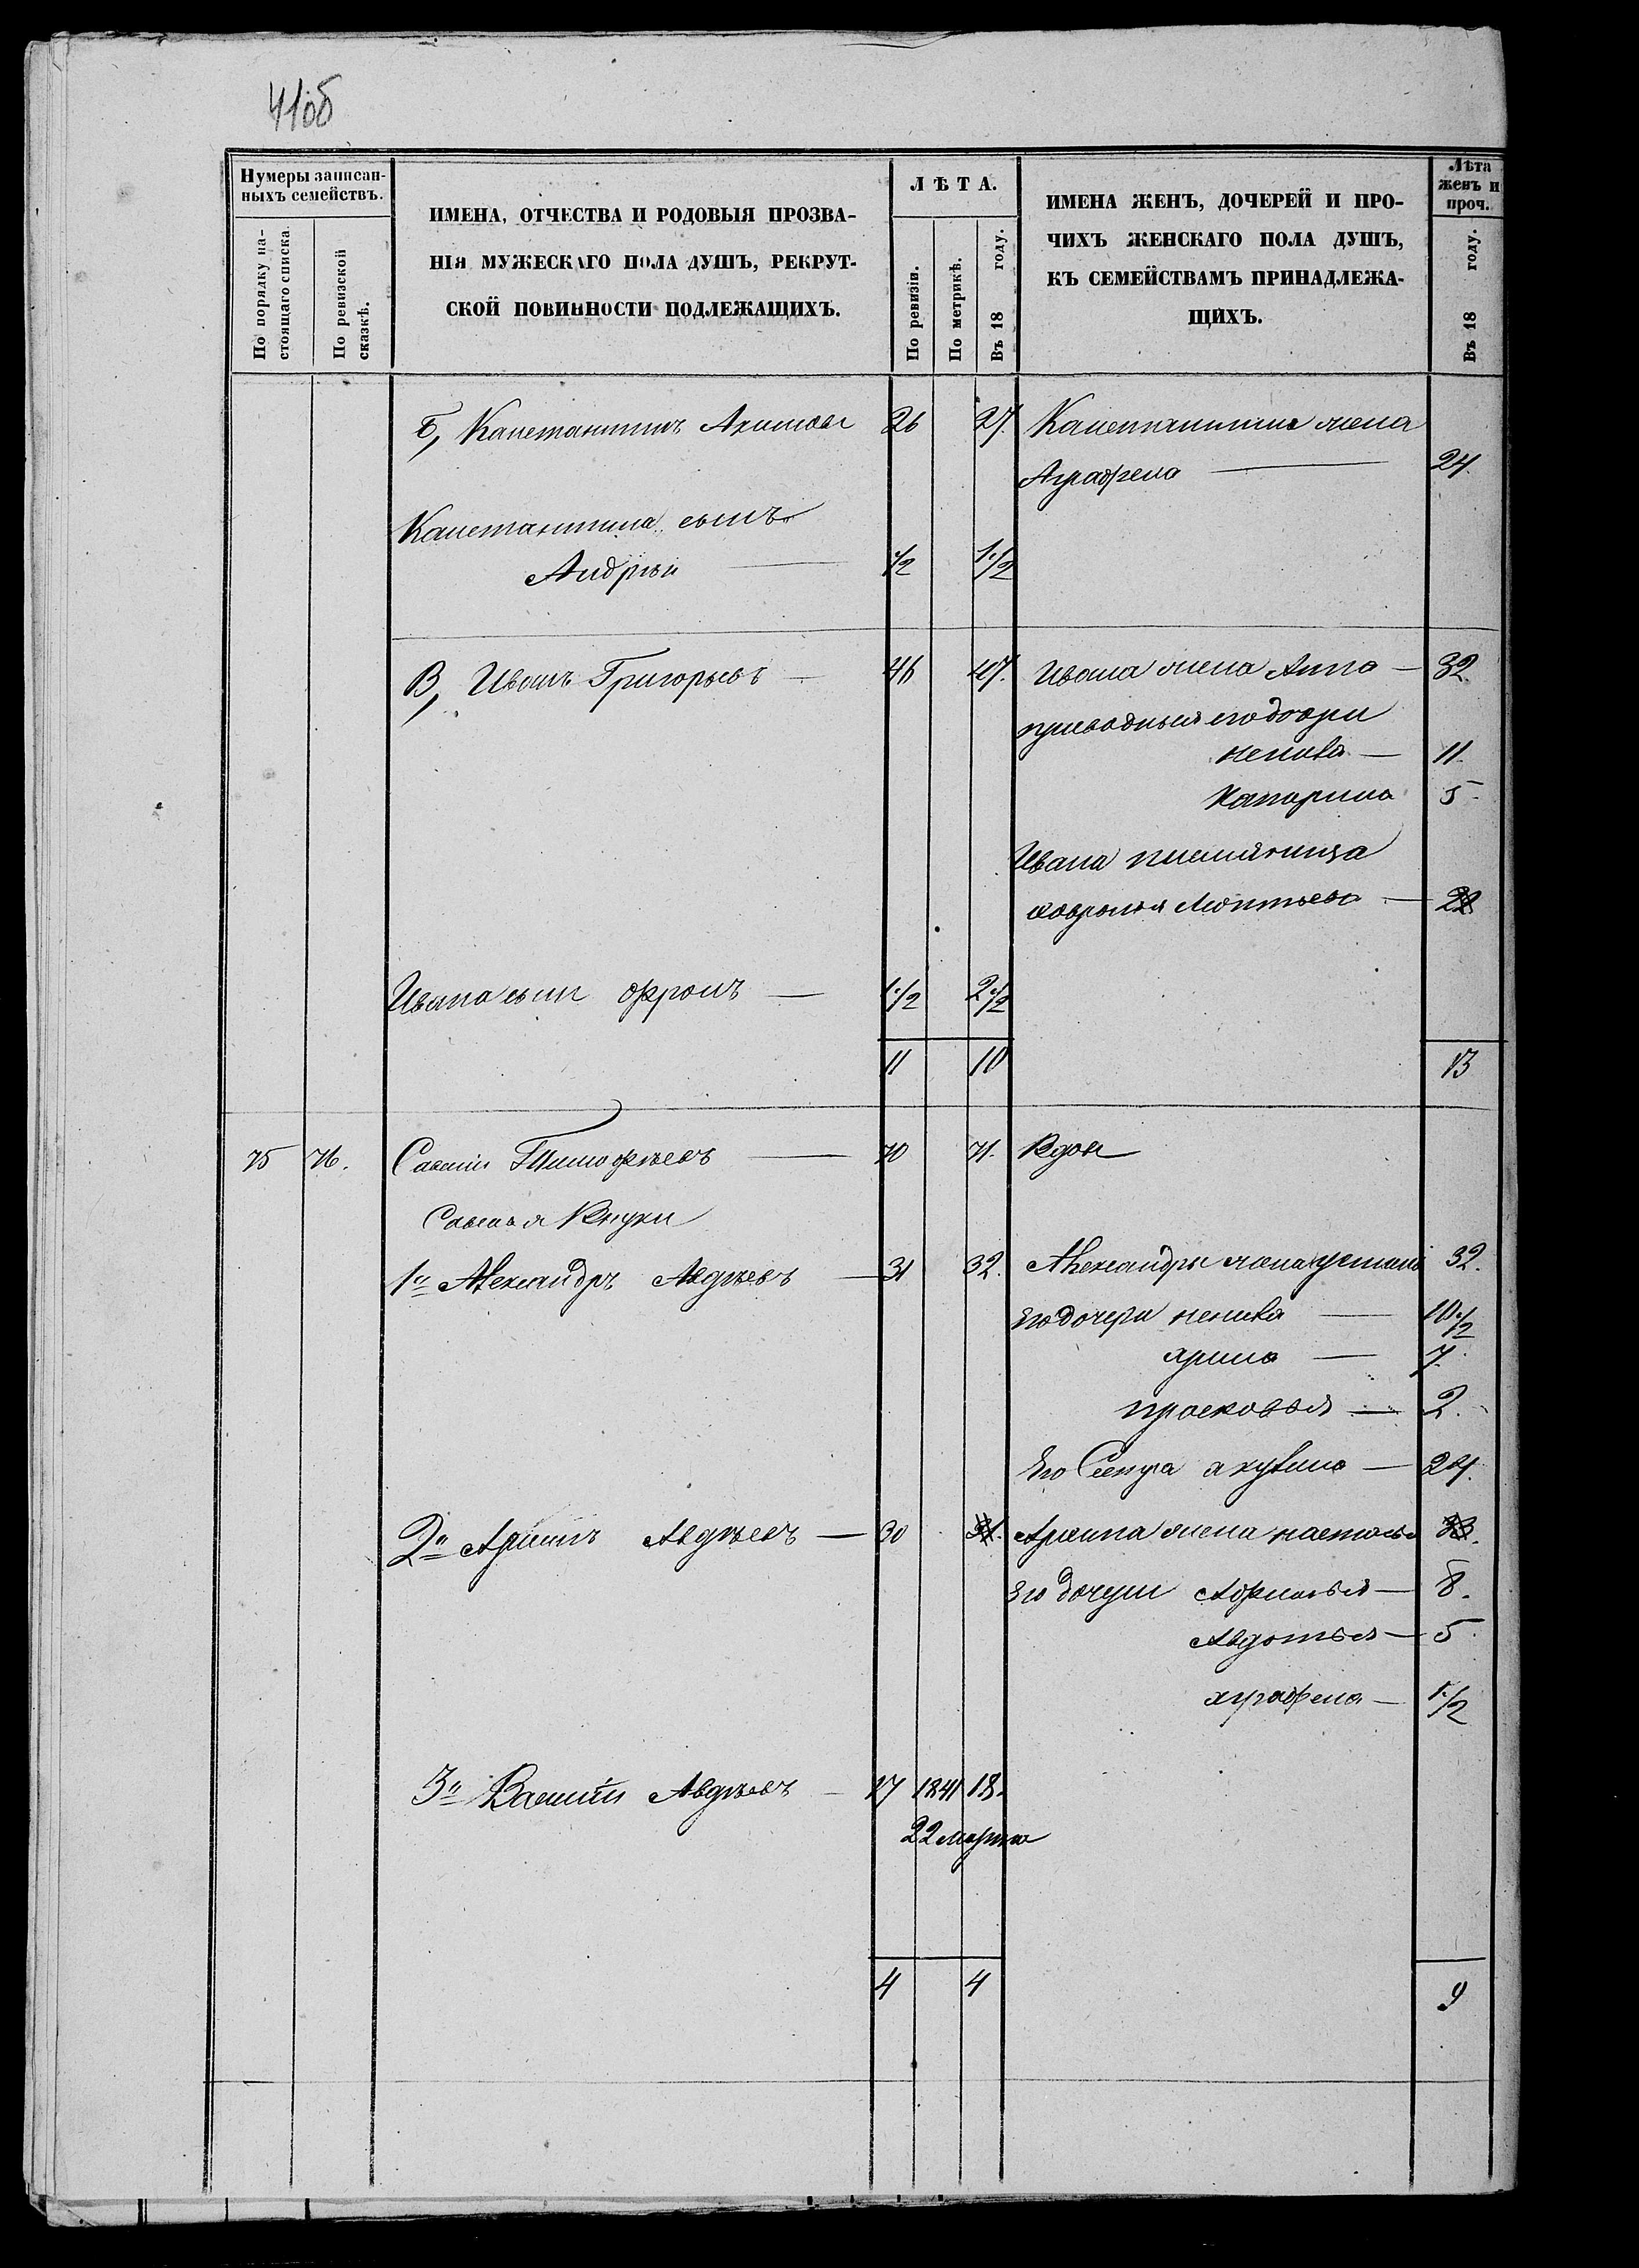 41об
Нумеры записан-
ныхъ семействъ.
По порядку на-
стоящаго списка.
По ревизской
сказкѣ.
ИМЕНА, ОТЧЕСТВА И РОДОВЫЯ ПРОЗВА-
НІЯ МУЖЕСКАГО ПОЛА ДУШЪ, РЕКРУТ-
СКОЙ ПОВИННОСТИ ПОДЛЕЖАЩИХЪ.
ЛѢТА.
По ревизіи.
По метрикѣ.
Въ 18 году.
ИМЕНА ЖЕНЪ, ДОЧЕРЕЙ И ПРО-
ЧИХЪ ЖЕНСКАГО ПОЛА ДУШЪ,
КЪ СЕМЕЙСТВАМЪ ПРИНАДЛЕЖА-
ЩИХЪ.
Лѣта
женъ и
проч.
Въ 18 году.
Б, Канстантинъ Акимовъ 26 27. Канстантина жена
Аграфена — 24.
Канстантина сынъ
Андрѣй — 1/2 1 1/2
В, Иванъ Григорьевъ — 46 47. Ивана жена Анна — 32
приводныя его дочри
— 11.
Катарина 5.
Ивана племяница
—
Ивана сын Фролъ — 1 1/2 2 1/2
11 10 13
75 76. Савелiй Тимофѣевъ — 70 71. Вдов
Савелья Внуки
1й Александръ Авдѣевъ — 31 32. Александры жена устинья 32.
Его дочери — 10 1/2
Арина — 7.
Прасковья — 2.
Его Сестра акулина — 24.
2й Архипъ Авдѣевъ — 30 31. Архипа жена настасья 33.
Его дочери Афимья — 8.
Авдотья — 5.
аграфена — 1/2
3й Василiй Авдѣевъ — 17 1841 18.
22 марта
4 4 9